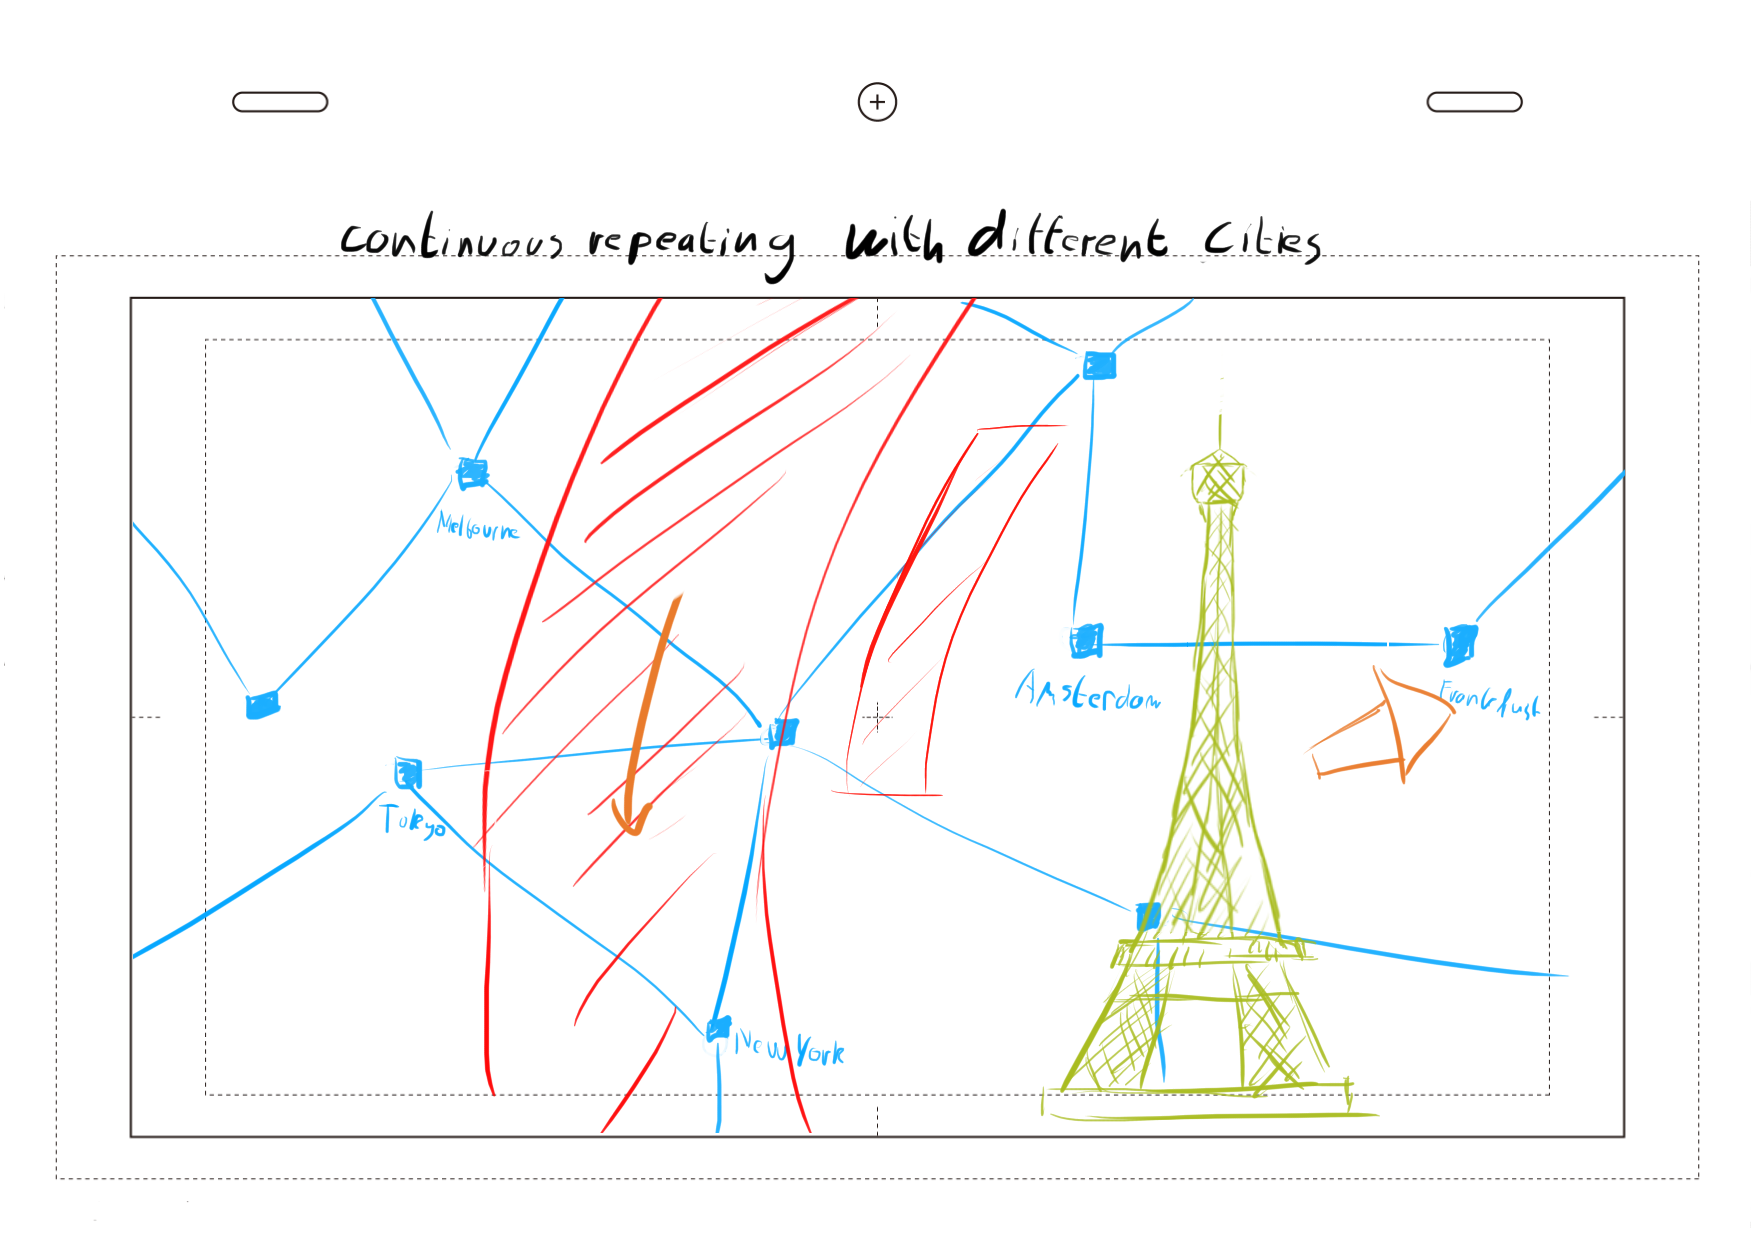 continuous repeating with different Cities
Melbourne
Amsterdam
Frankfust
Tokyo
New York